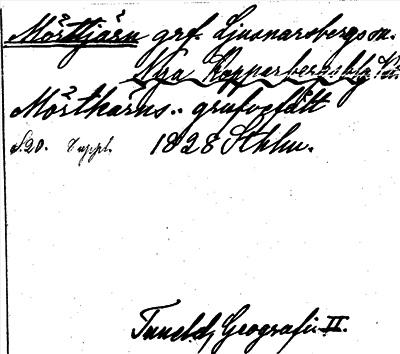 Mörttjärn grf. Ljusnarsbergs sn.
Nya Kopparbergs bslg
Mörtkärns.. grufvefält
S. 20. Suppl. 1828 Sthlm.
Tuneld, Geografi II.